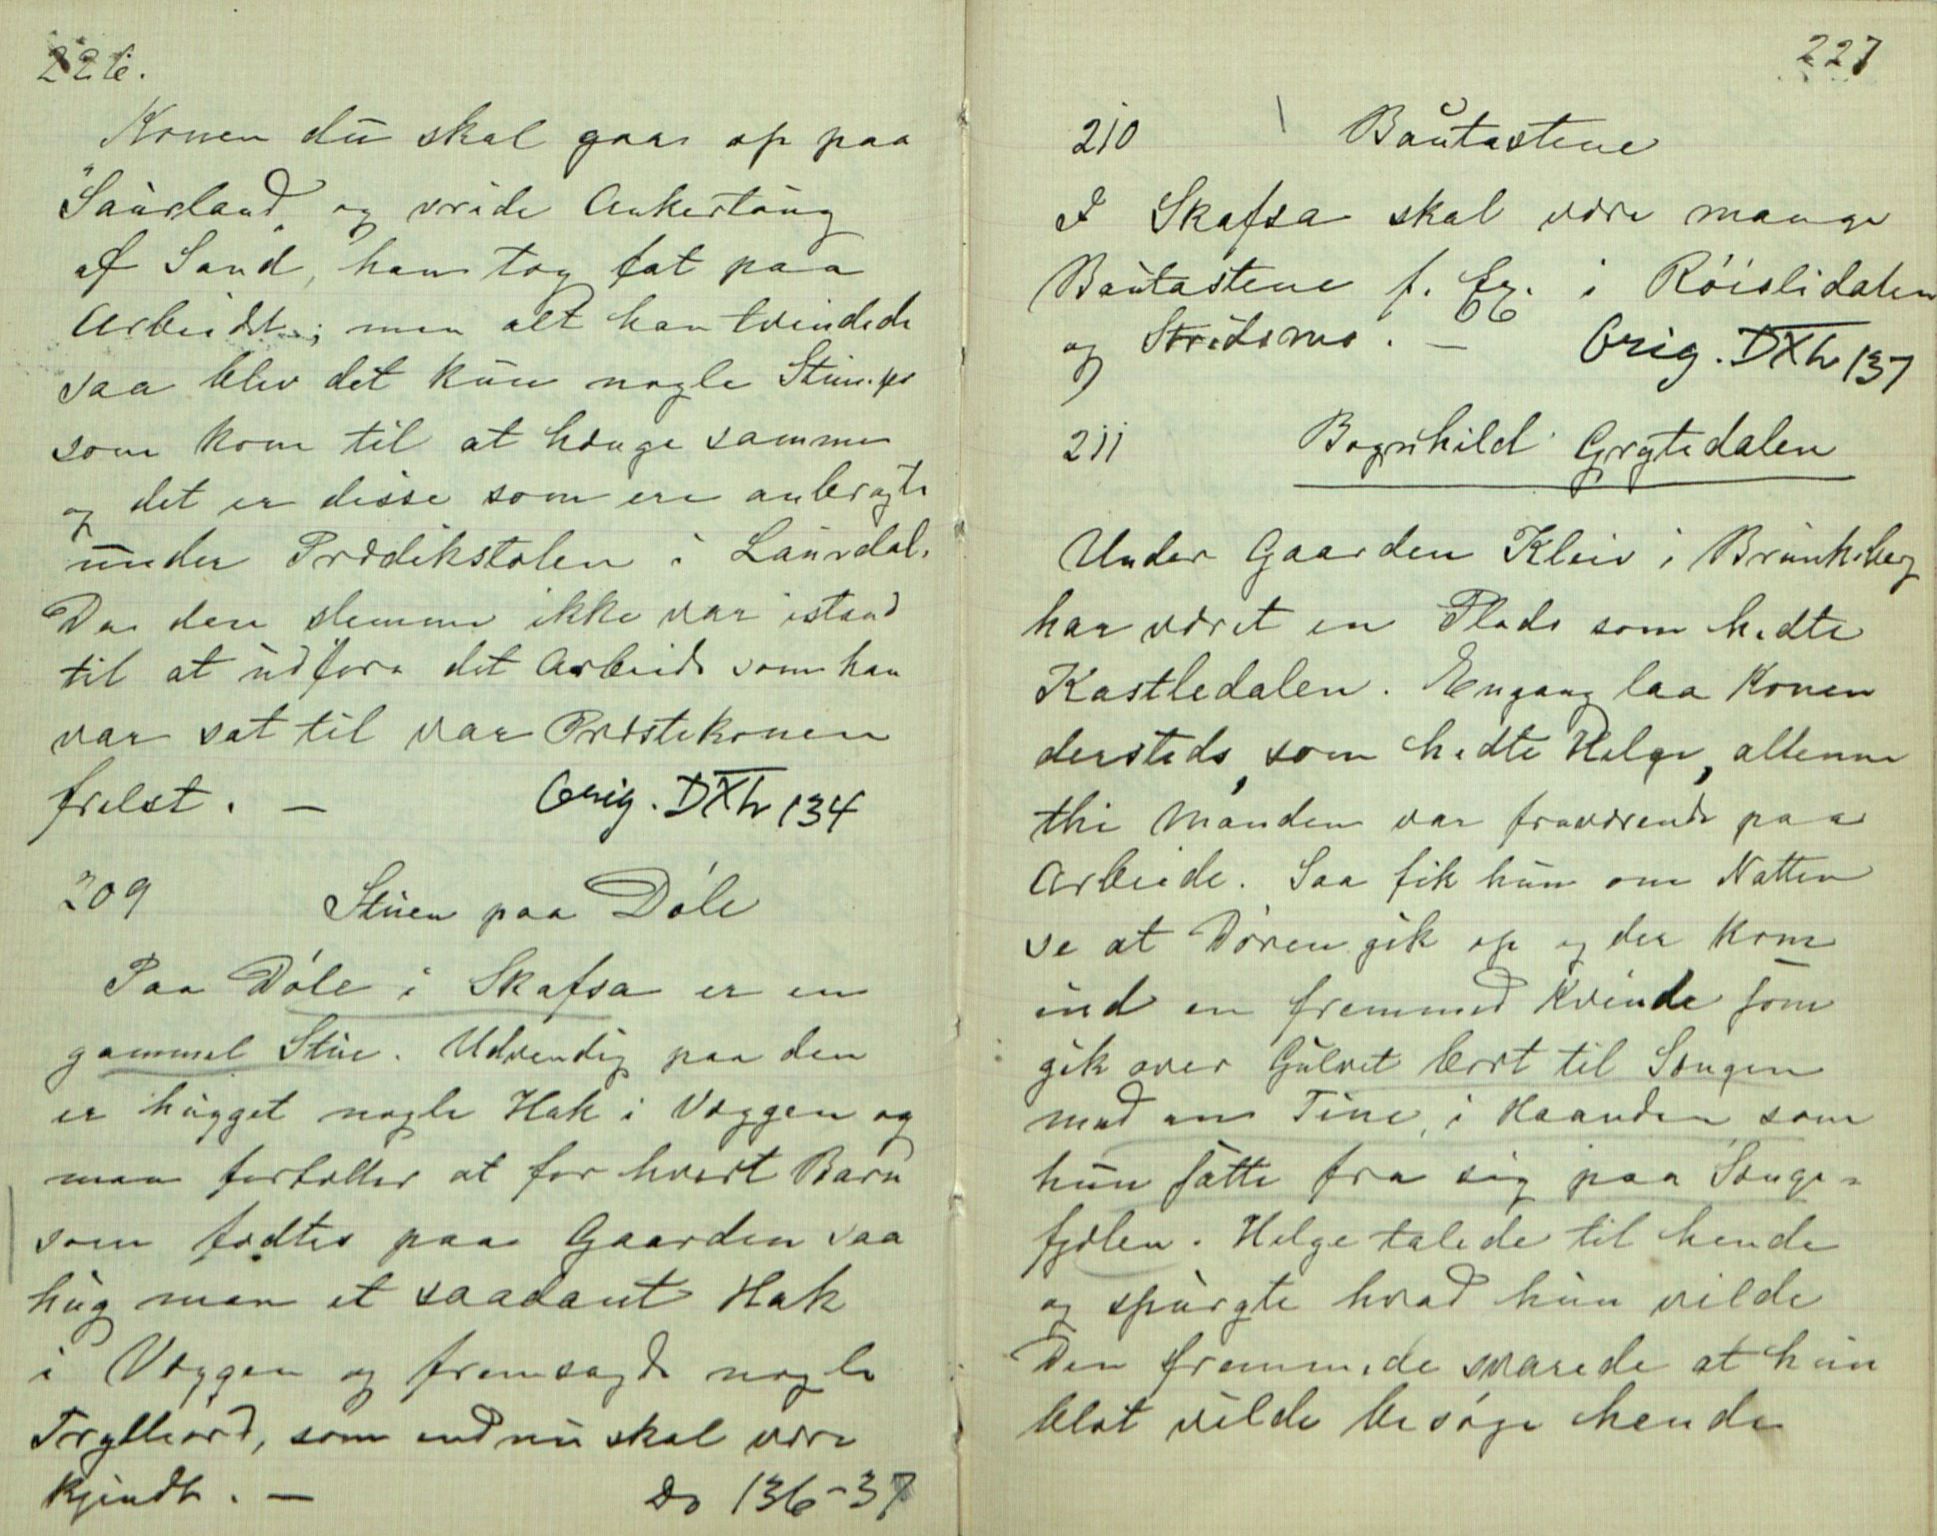 226.
Konen du skal gaa op paa
"Saurland" og vride Ankertaug
af Sand, han tog fat paa
Arbeidet; men alt han tvindede
saa blev det kun nogle Stumper
som kom til at hænge sammen
og det er disse som ere anbragte
under Prædikstolen i Laurdal.
Da den slemme ikke var istand
til at udføre det Arbeide som han
var sat til var Præstekonen
frelst. —
Orig. DXh 134
209
Stuen paa Dåle
Paa Dåle i Skafsa er en
gammel Stue. Udvendig paa den
er hugget nogle Hak i Væggen og
man fortæller at for hvert Barn
som fødtes paa Gaarden saa
hug man et saadant Hak
i Væggen og fremsagde nogle
Trylleord, som endnu skal være
kjendt. —
Do 136-37
227
210 Bautastene
I Skafsa skal være mange
Bautastene f. Ex. i Röislidalen
og Stridsmo. —
Orig. DXh 137
211 Bognhild Grytedalen
Under Gaarden Kleiv i Brunkeberg
har været en Plads som hedte
Kastledalen. Engang laa Konen
dersteds, som hedte Helge, allene
thi Manden var fraværende paa
Arbeide. Saa fik hun om Natten
se at Døren gik op og der kom
ind en fremmed Kvinde som
gik over Gulvet bort til Sengen
med en Tine, i Haanden som
hun satte fra sig paa Senge-
fjælen. Helge talede til hende
og spurgte hvad hun vilde
Den fremmede svarede at hun
blot vilde besøge hende